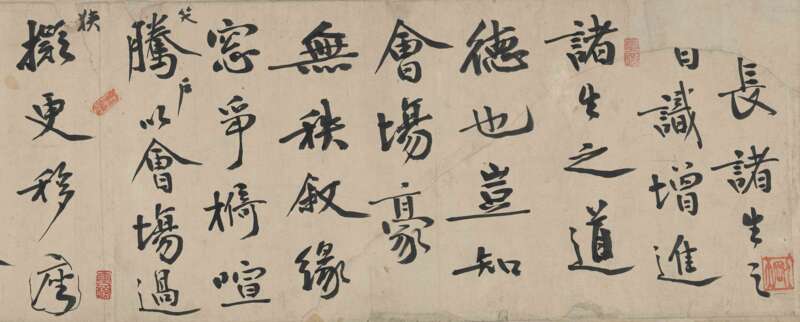 長諸生之
日識增進
諸生之道
德也豈知
會塲豪
無秩敘緣
窓爭槗喧
騰戶以會塲過
狹
擬更移座